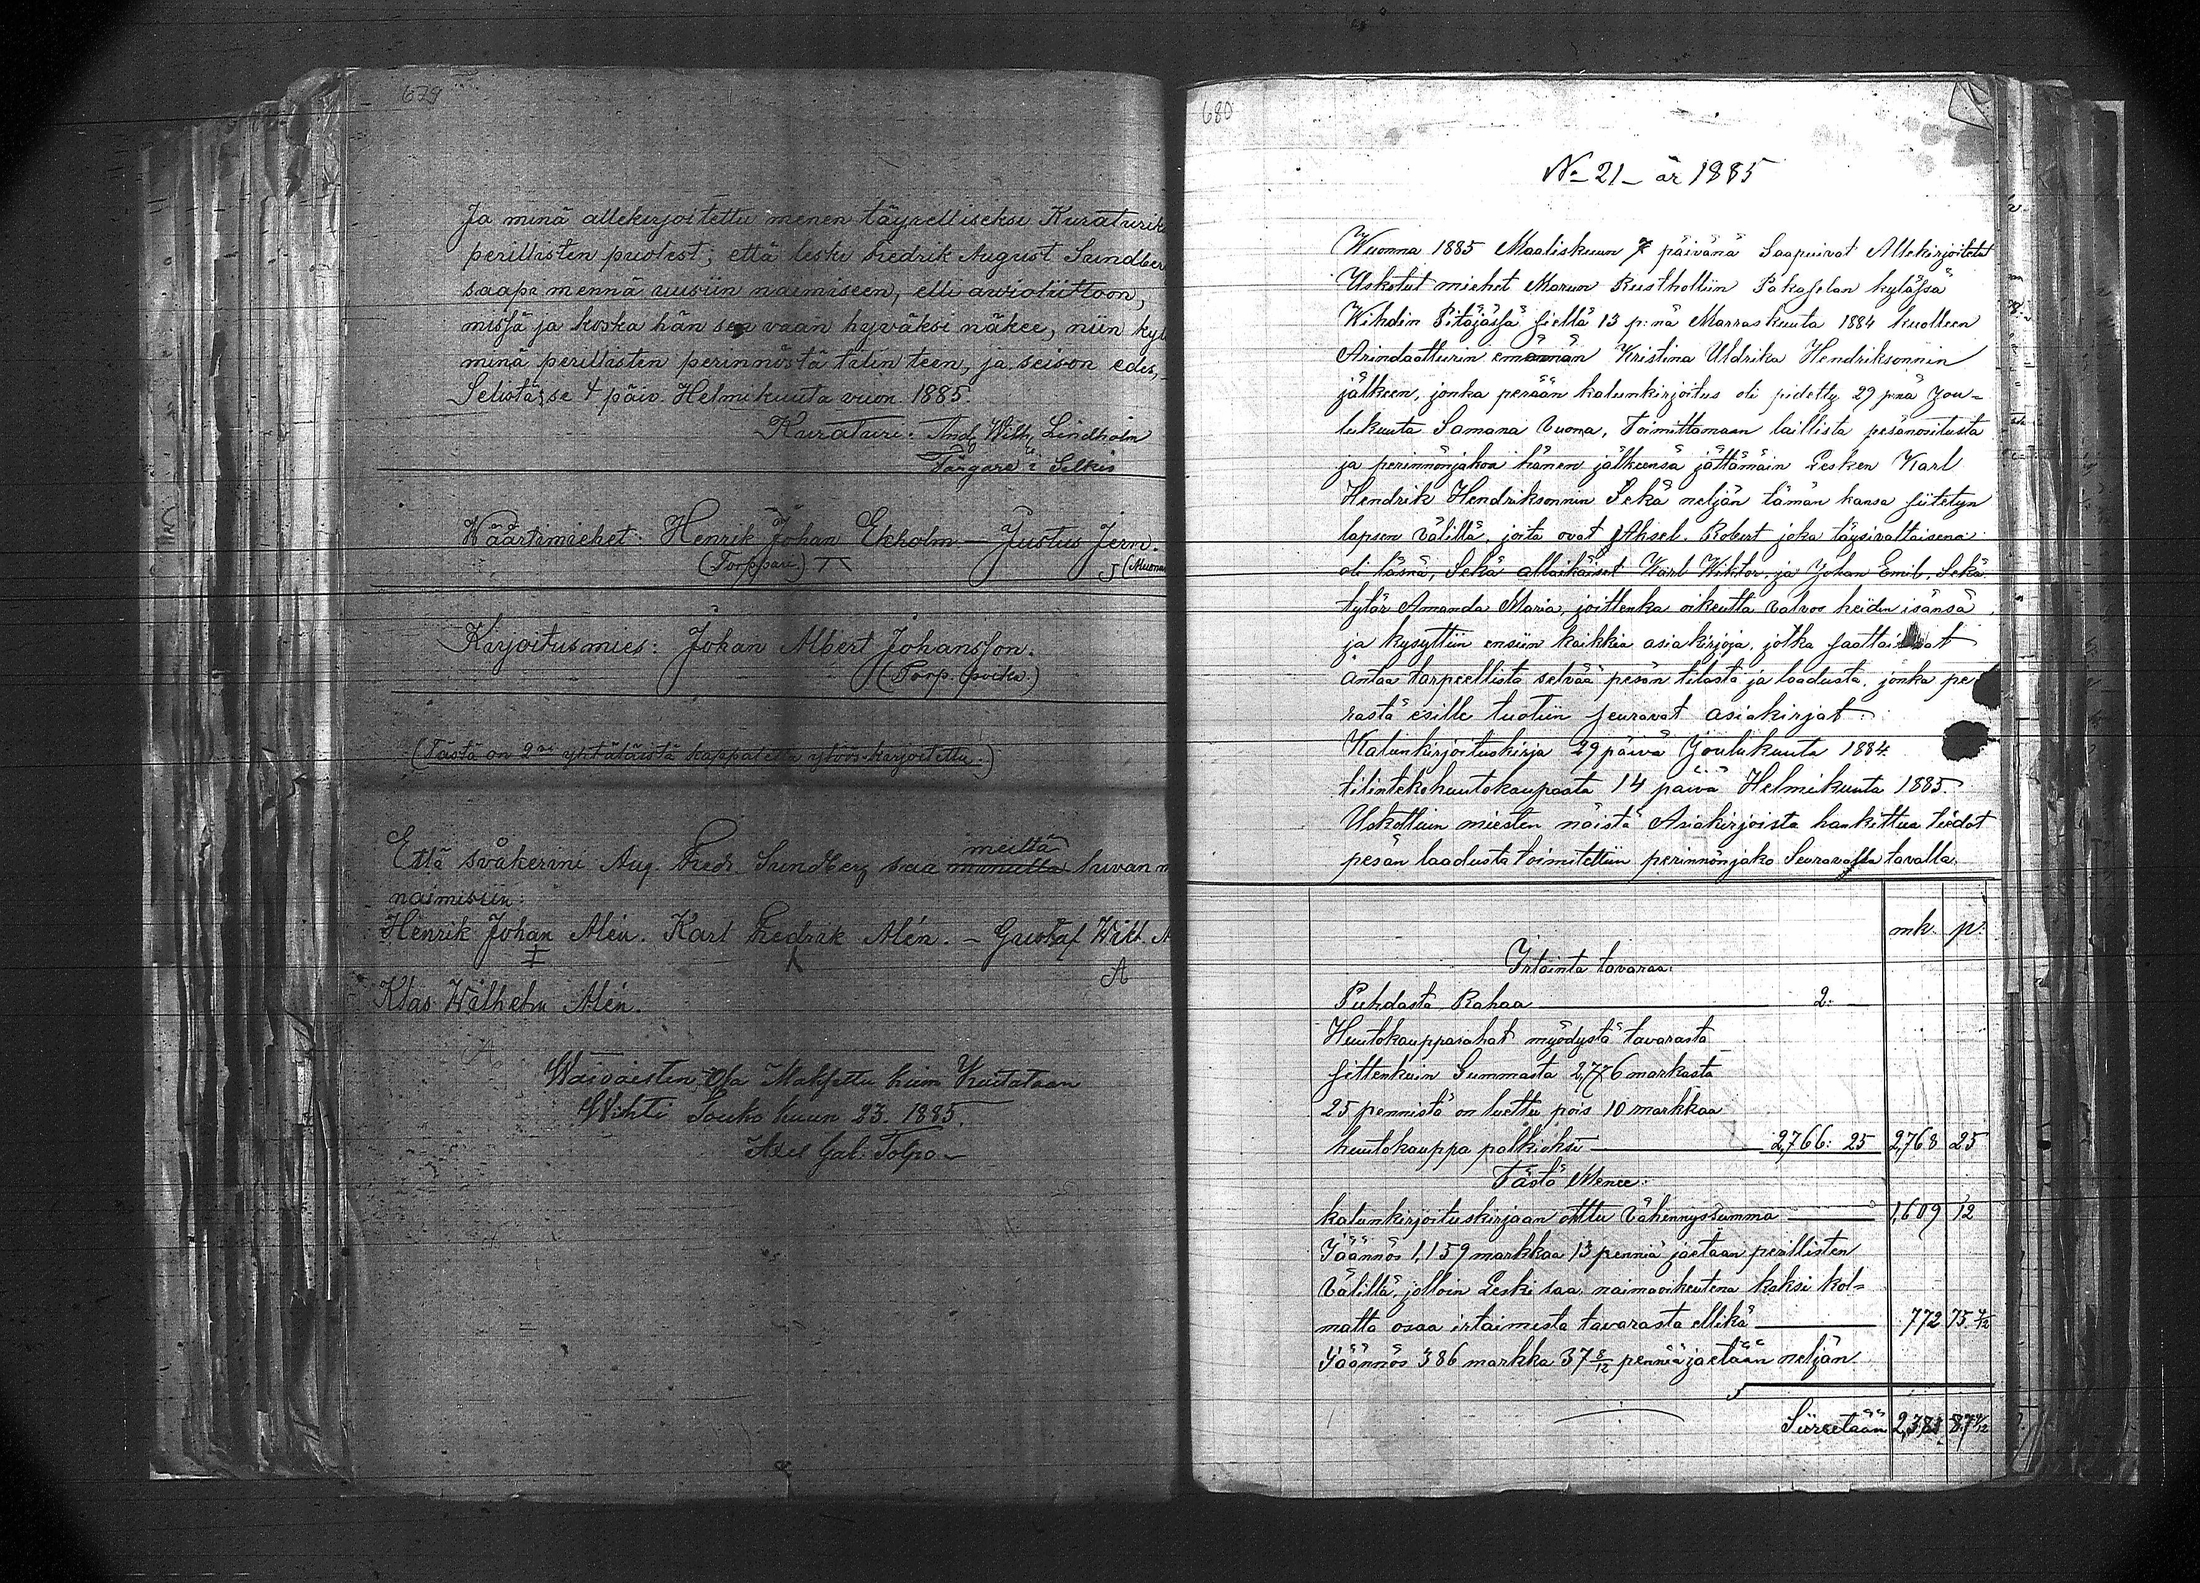 679
Ja minä allekirjoitettu menen täyvelliseksi Kuraturik
perillisten puolest; että leski Fredrik August Sundber
saapa mennä uusiin naimiseen, elli avioliittoon,
missä ja koska hän sen vaan hyväksi näkee, niin kyl
minä perillisten perinnöstä tilin teen, ja seison edes,
Selistässe 4 päiv. Helmikuuta vuon. 1885.
Kuraturi: And. Wilh. Lindholm
Färgare i Selkis
Wäärtimiehet: Henrik Johan Ekholm — Justus Jern.
(Torppari)
Kirjoitusmies: Johan Albert Johansson.
(Torp. poika.)
(Tästä on 2si yhtäläistä kappaletta ylöös kirjoitettu.)
Että svåkerini Aug. Fredr. Sundberg saa minulta meiltä luvan
naimisiin:
Henrik Johan Alén. Karl Fredrik Alén. — Gustaf Wilh. A
A
Klas Wilhelm Alén.
A
Waivaisten Osa Maksettu kuin Kuitataan
Wihti Touko kuun 23. 1885.
Axel Gab. Tolpo
680
No 21 — år 1885
Wuonna 1885 Maaliskuun 7 päivänä Saapuivat Allekirjoitetut
Uskotut miehet Maruun Rustholliin Pakaselan kylässä
Wihdin Pitäjässä siellä 13 p:nä Marraskuuta 1884 kuolleen
Arindaattorin emännän Kristina Uldrika Hendriksonnin
jälkeen, jonka perään kalunkirjoitus oli pidetty 29 pnä Jou=
lukuuta Samana Vuona, Toimittamaan laillista pesänositusta
ja perinnönjakoa hänen jälkeensä jättämäin Lesken Karl
Hendrik Hendriksonnin Sekä neljän tämän kansa siitetyn
lapsen Välillä, joita ovat Aksel Robert joka täysivaltaisena
oli läsnä, Sekä allaikäiset Karl Wiktor, ja Johan Emil, Sekä
tytär Amanda Maria, joittenka oikeutta valvoo heiden isänsä
ja kysyttiin ensiin kaikkia asiakirjoja, jotka saattaisivat
antaa tarpeellista selvää pesän tilasta ja laadusta, jonka pe
rästä esille tuotiin seuravat asiakirjat:
Kalunkirjoituskirja 29 päivä Joulukuuta 1884.
tilintekohuutokaupasta 14 päivä Helmikuuta 1885.
Uskottuin miesten näistä Asiakirjoista hankittua tiedot
pesän laadusta toimitettiin perinnönjako Seuravassa tavalla.
mk. p:
Irtainta tavaraa:
Puhdasta Rahaa — 2. —
Huutokaupparahat myödystä tavarasta
sittenkuin Summasta 2,776 markasta
25 pennistä on luettu pois 10 markkaa
huutokauppa palkioksi — 2,766: 25 2,768 25
Tästä Menee:
kalunkirjoituskirjaan otettu Vähennyssumma — 1,609 12
Jäännös 1,159 markkaa 13 penniä jaetaan perillisten
Välillä, jolloin Leski saa naimaoikeutena kaksi kol=
matta osaa irtaimesta tavarasta ellikä — 772 75 4/12
Jäännös 386 markka 37 8/12 penniä jaetaan neljän
Siirretään 2,381 87 4/12